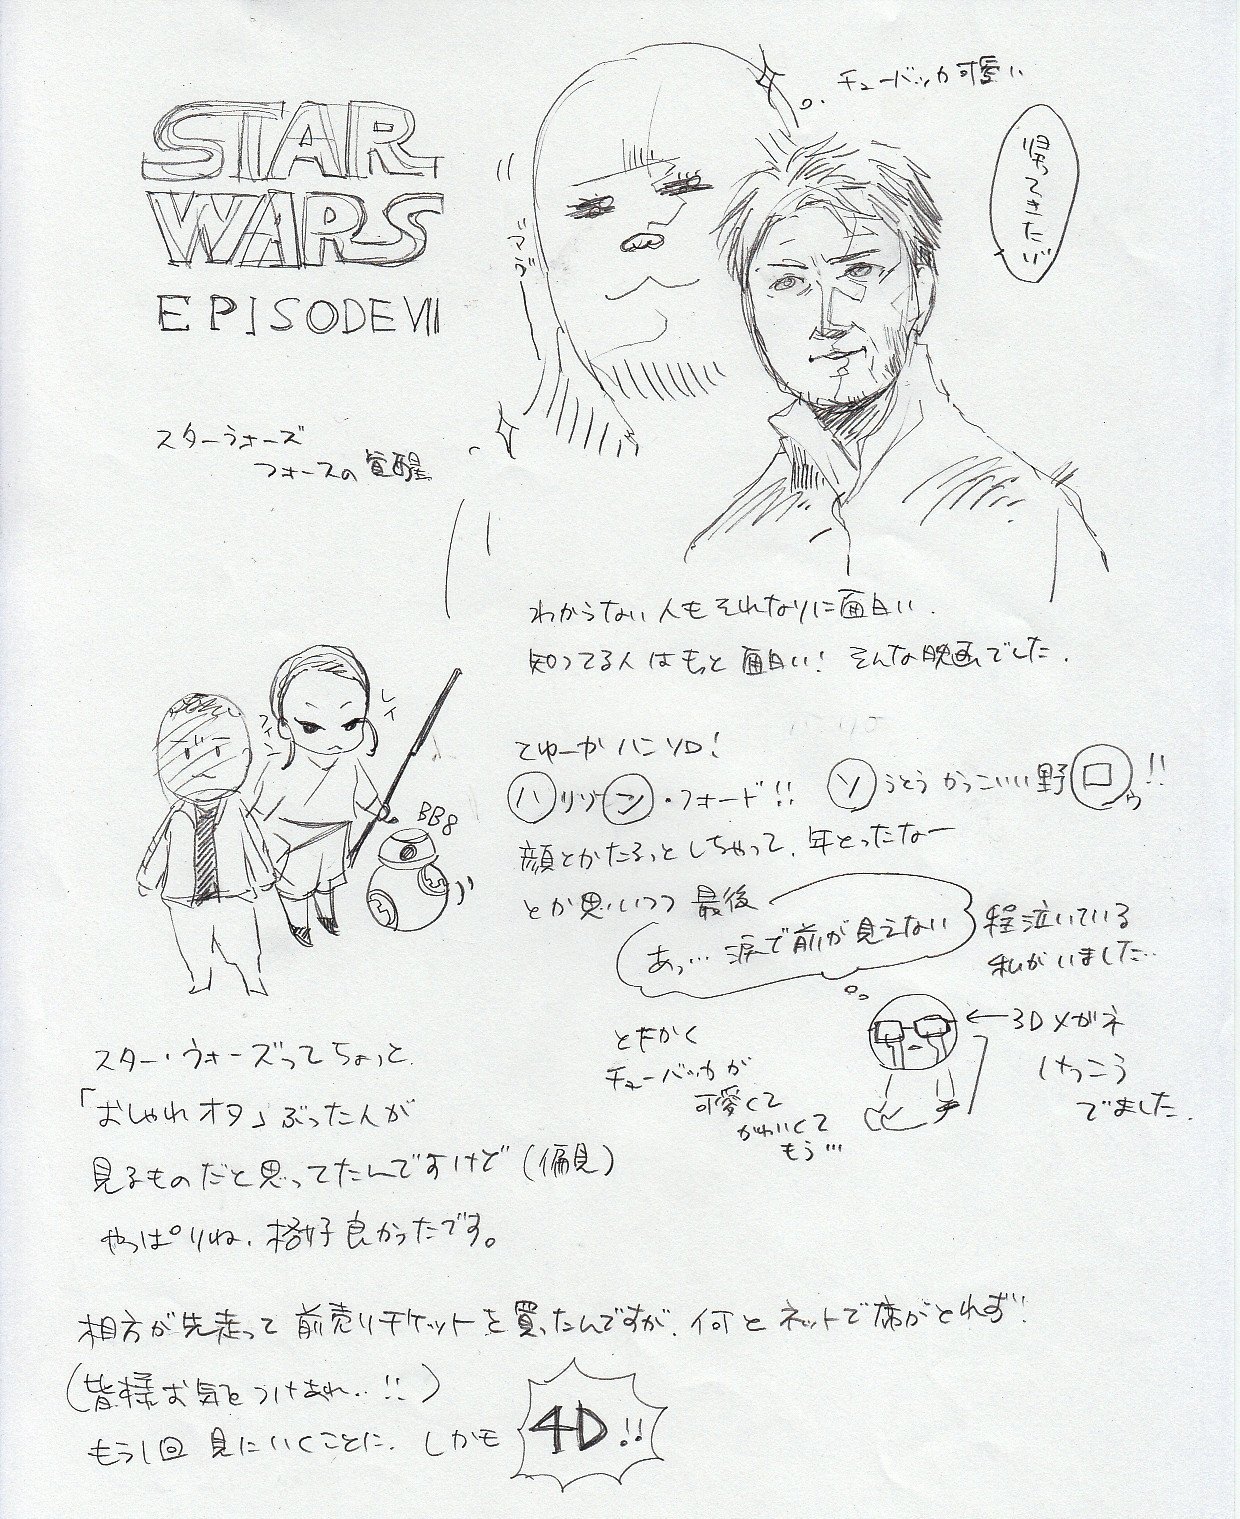 STAR
WARS
EPISODE VII
スターウォーズ
フォースの覚醒
チューバッカ可愛い
帰ってきたぜ
わからない人もそれなりに面白い.
知ってる人はもっと面白い! そんな映画でした.
フィン
レイ
BB8
てゆーかハンソロ!
ハリソン・フォード!! ソうとうかっこいい野ロゥ!!
顔とかたるっとしちゃって、年とったなー
とか思いつつ最後
あっ…涙で前が見えない
程泣いている
私がいました…
←3Dメガネ
けっこう
でました.
とにかく
チューバッカが
可愛くて
かわいくて
もう…
スター・ウォーズってちょっと、
「おしゃれオタ」ぶった人が
見るものだと思ってたんですけど(偏見)
やっぱりね、格好良かったです。
相方が先走って前売りチケットを買ったんですが、何とネットで席がとれず!
(皆様お気をつけあれ..!!)
もう1回見にいくことに. しかも
4D!!